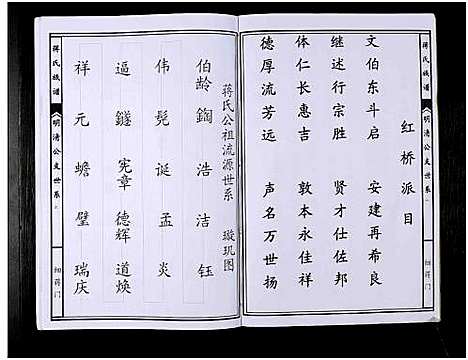 蒋氏族谱
明清公支世系
细蒋门
红桥派目
文伯东斗启 安建再希良
继述行宗胜 贤才仕佐邦
体仁长惠吉 敦本永佳祥
德厚流芳远 声名万世扬
蒋氏公祖流源世系 璇玑图
伯龄 鋾 浩 洁 钰
伟 髡 诞 孟 炎
逼 鐩 宪章 德辉 道焕
祥 元 蟾 璧 瑞庆
蒋氏族谱
明清公支世系
细蒋门